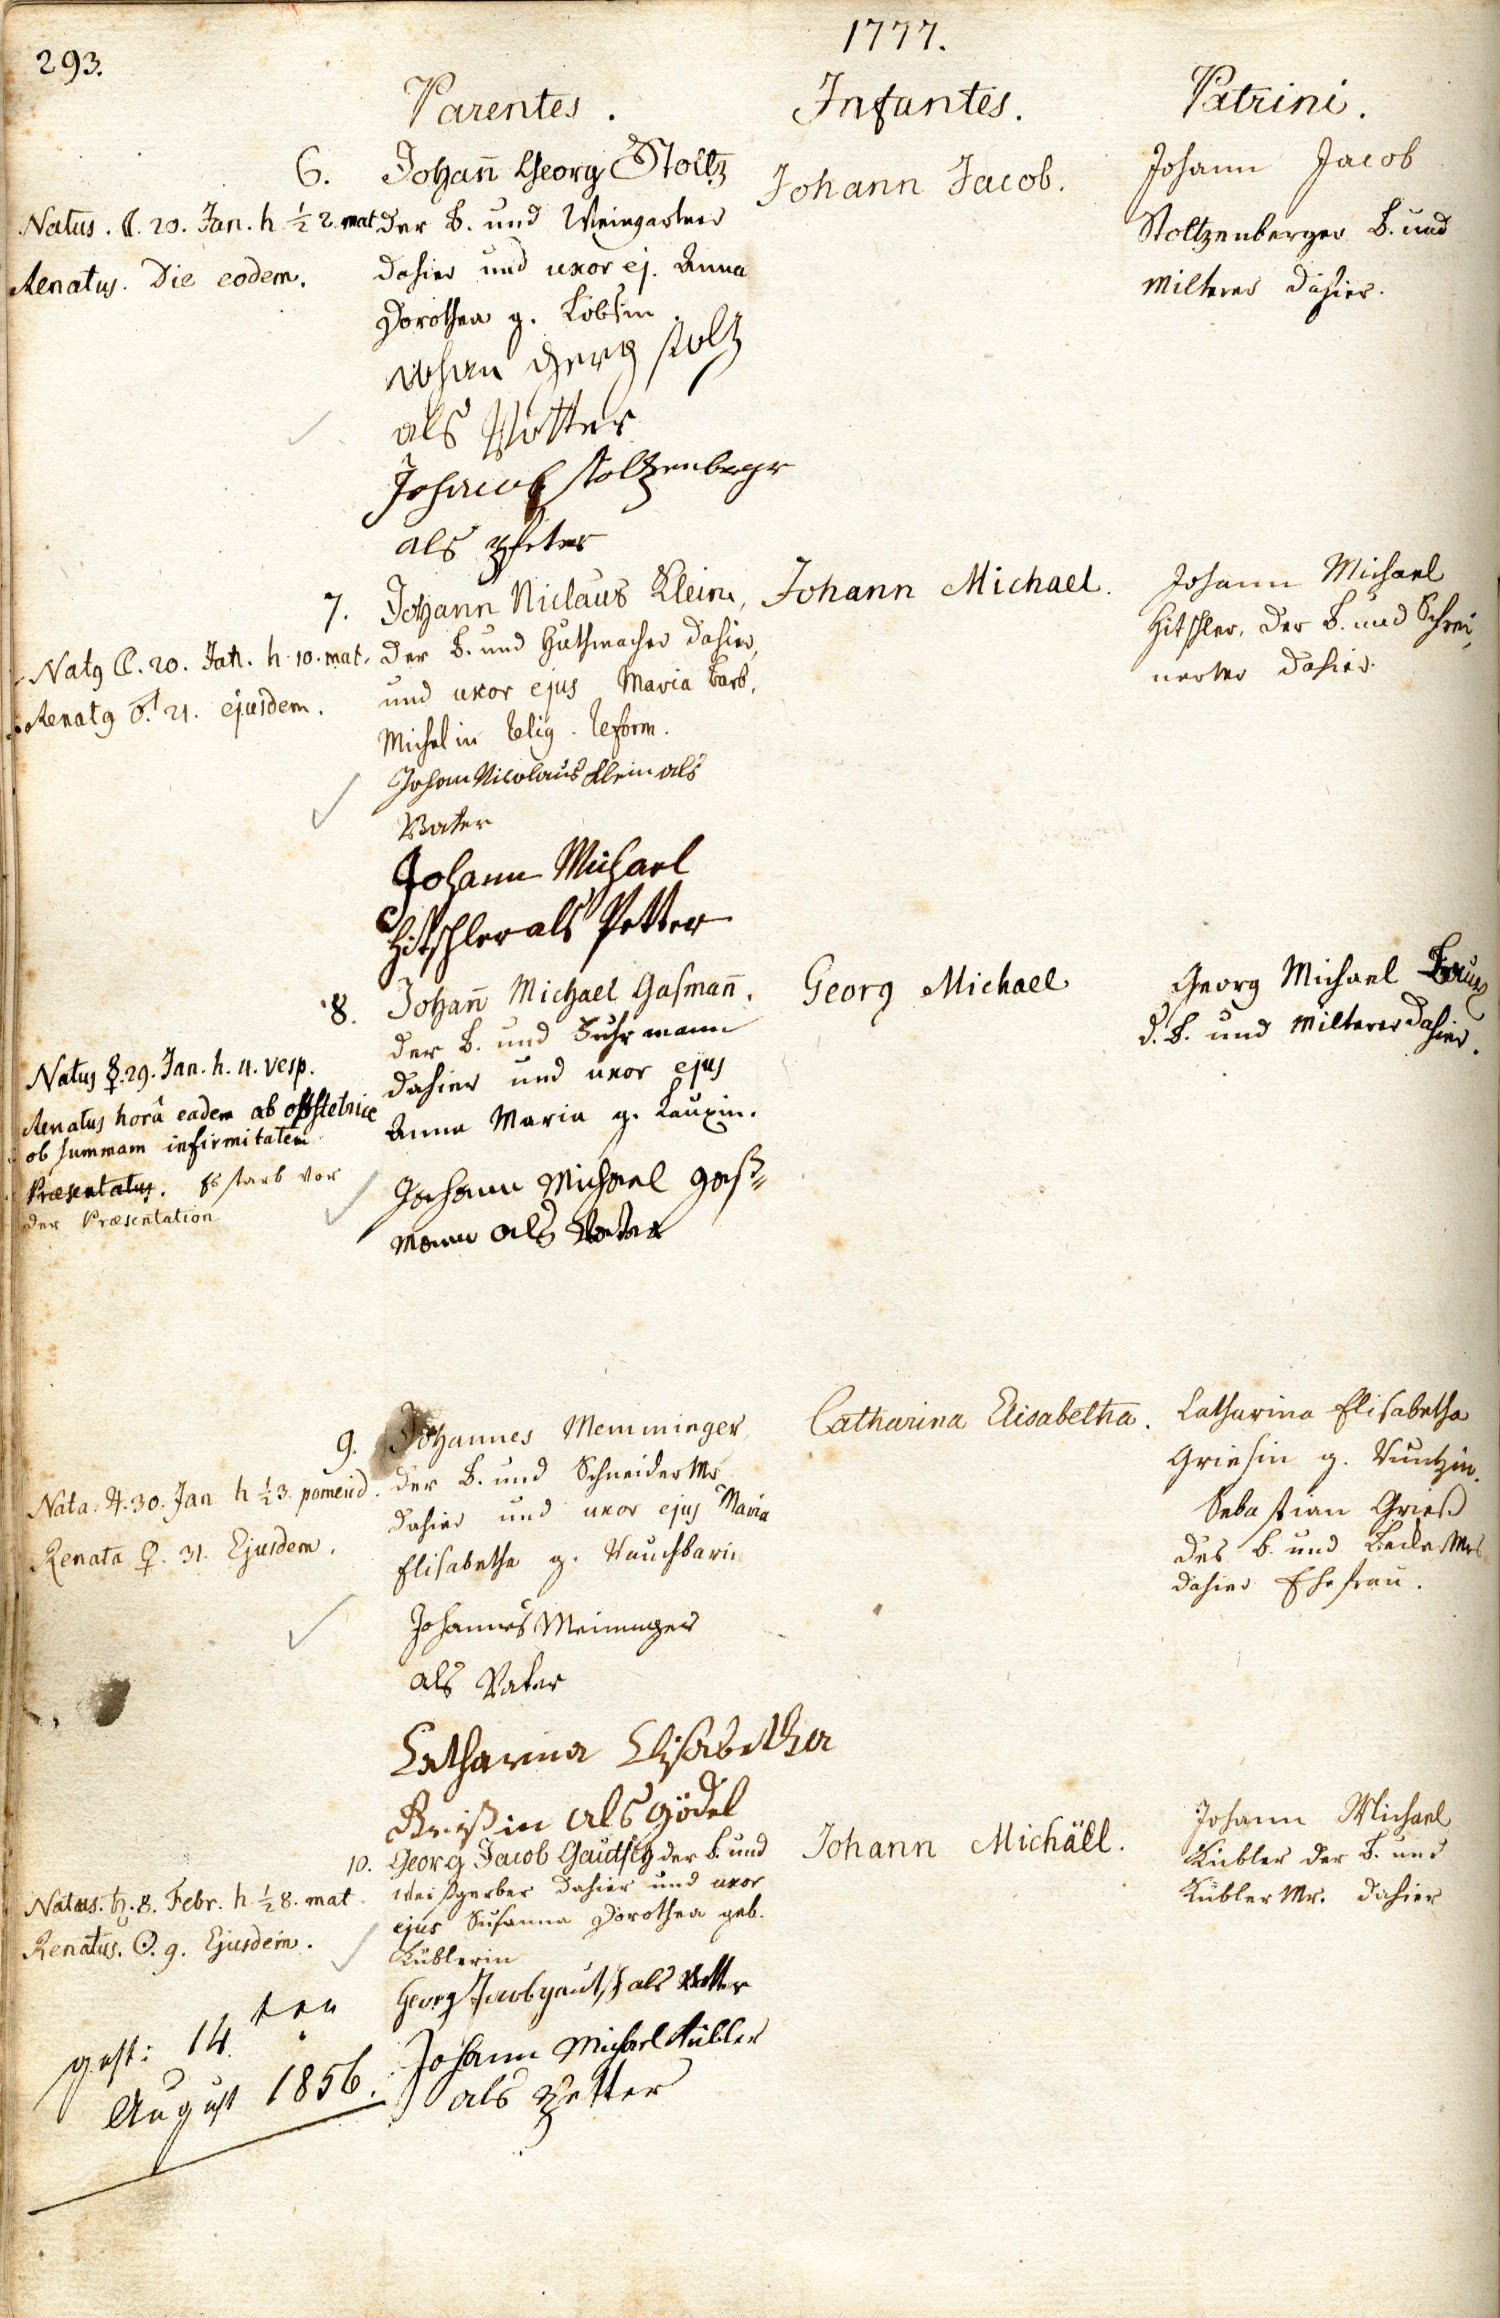 293.
1777.
Parentes.
Infantes.
Patrini.
6.
Natus. ☾. 20. Jan. h. ½ 2. mat.
Renatus. Die eodem.
Johan̄ Georg Stoltz
der B. und Weingartner
dahier und uxor ej. Anna
Dorothea g.
als Vatter
Stoltzenberger
als
Johann Jacob.
Johann Jacob
Stoltzenberger B. und
dahier.
7.
Natꝰ ☾. 20. Jan. h. 10. mat.
Renatꝰ ♂. 21. ejusdem.
Johann Niclaus Klein,
der B. und Huthmacher dahier,
und uxor ejus Maria Barb.
Michelin Relig. Reform.
Johan Nicolaus Klein als
Vater
Johann Michael
Hitschler als Petter
Johann Michael.
Johann Michael
Hitschler, der B. und Schrei,
nerMr dahier.
8.
Natus ☿. 29. Jan. h. 4. vesp.
Renatus horâ eadem ab obstetrice
ob summam infirmitatem
Præsentatus. Es starb vor
der Præsentation
Johan̄ Michael Gasman̄.
der B. und Fuhrmann
dahier und uxor ejus
Anna Maria g. Lauxin.
Johann Michael Gaß=
mann als Vater
Georg Michael
Georg Michael
d. B. und dahier.
9.
Nata. ♃. 30. Jan h ½ 3. pomerid.
Renata ♀. 31. Ejusdem.
Johannes Memminger,
der B. und SchneiderMr
dahier und uxor ejus Maria
Elisabetha g.
Johannes Meminger
als Vater
Catharina Elisabetha
als Gödel
Catharina Elisabetha.
Catharina Elisabetha
Griesin g.
Sebastian Grieß
des B. und BeckeMrs
dahier Ehefrau.
10.
Natus. ♄. 8. Febr. h. ½ 8. mat.
Renatus. ☉. 9. Ejusdem.
gest: 14 ten
August 1856.
Georg Jacob Gautsch der B. und
Weißgerber dahier und uxor
ejus Susanna Dorothea geb.
Küblerin
Georg Jacob gautsch als Vatter
Johann Michael Kübler
als Petter
Johann Michäel.
Johann Michael
Kübler der B. und
Kübler Mr. dahier